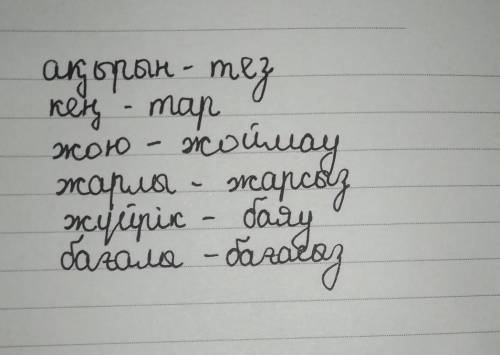 ақырын - тез
кең - тар
жою - жоймау
жарлы - жарсыз
жүйрік - баяу
бағалы - бағасыз